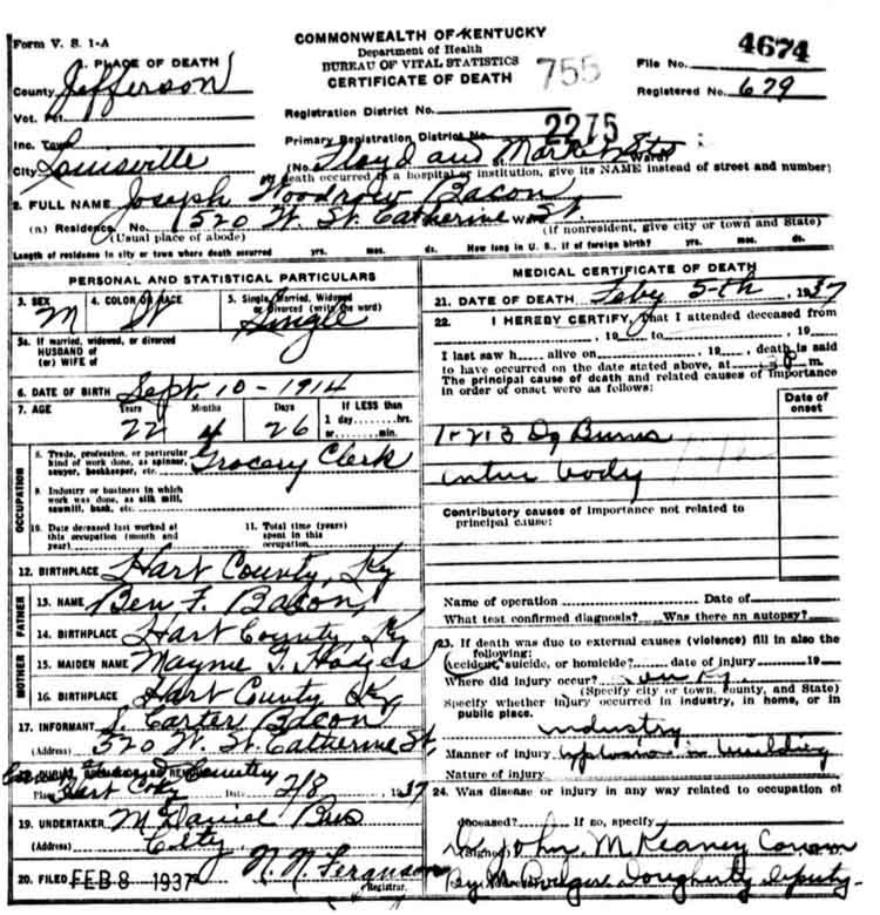 Form V. S. 1-A
COMMONWEALTH OF KENTUCKY
Department of Health
BUREAU OF VITAL STATISTICS
CERTIFICATE OF DEATH
755
File No. 4674
Registered No. 679
1. PLACE OF DEATH
County Jefferson
Vot. Pct.
Inc. Town
City Louisville
Registration District No.
Primary Registration District No. 2275
(No. Floyd and Market Sts St. Ward)
death occurred in a hospital or institution, give its NAME instead of street and number)
2. FULL NAME Joseph Woodrow Bacon
(a) Residence. No. 1520 W. St. Catherine St.
(Usual place of abode) (If nonresident, give city or town and State)
Length of residence in city or town where death occurred yrs. mos. ds. How long in U. S., if of foreign birth? yrs. mos. ds.
PERSONAL AND STATISTICAL PARTICULARS
3. SEX M
4. COLOR OR RACE W
5. Single, Married, Widowed or Divorced (write the word) Single
5a. If married, widowed, or divorced
HUSBAND of
(or) WIFE of
6. DATE OF BIRTH Sept. 10 - 1914
7. AGE Years Months Days If LESS than
22 4 26 1 day,......hrs.
or......min.
OCCUPATION
8. Trade, profession, or particular kind of work done, as spinner, sawyer, bookkeeper, etc. Grocery Clerk
9. Industry or business in which work was done, as silk mill, sawmill, bank, etc.
10. Date deceased last worked at this occupation (month and year)
11. Total time (years) spent in this occupation
12. BIRTHPLACE Hart County, Ky
FATHER
13. NAME Ben F. Bacon,
14. BIRTHPLACE Hart County Ky
MOTHER
15. MAIDEN NAME Mayme T. Hodges
16. BIRTHPLACE Hart County Ky,
17. INFORMANT Carter Bacon
(Address) 520 W. St. Catherine St,
Cemetery
Place Hart Co Ky Date 2/8 1937
19. UNDERTAKER McDaniel Bros
(Address) City
20. FILED FEB 8 1937 N. N. Ferguson
Registrar.
MEDICAL CERTIFICATE OF DEATH
21. DATE OF DEATH Feby 5-th, 1937
22. I HEREBY CERTIFY, That I attended deceased from
, 19 to , 19
I last saw h alive on , 19 , death is said
to have occurred on the date stated above, at m.
The principal cause of death and related causes of importance
in order of onset were as follows:
Date of onset
1-2-3 Dg Burns
entire body
Contributory causes of importance not related to
principal cause:
Name of operation Date of
What test confirmed diagnosis? Was there an autopsy?
23. If death was due to external causes (violence) fill in also the
following:
Accident, suicide, or homicide? date of injury 19
Where did injury occur? Lou Ky.
(Specify city or town, county, and State)
Specify whether injury occurred in industry, in home, or in
public place.
industry
Manner of injury explosion in building
Nature of injury
24. Was disease or injury in any way related to occupation of
deceased? If no, specify
(Signed) Dr John M Keaney Coroner
By M Dougherty Deputy.